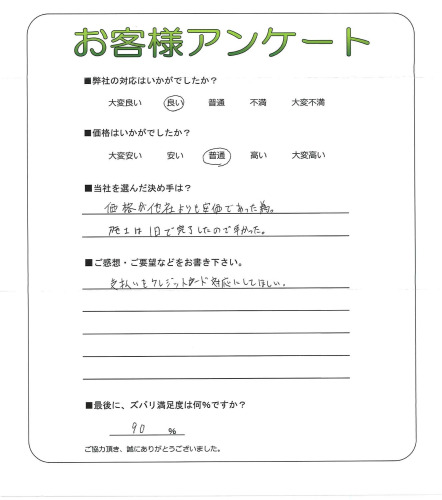 お客様アンケート
■弊社の対応はいかがでしたか？
大変良い 良い 普通 不満 大変不満
■価格はいかがでしたか？
大変安い 安い 普通 高い 大変高い
■当社を選んだ決め手は？
価格が他社よりも安価であった為。
施工は1日で完了したので早かった。
■ご感想・ご要望などをお書き下さい。
支払いもクレジットカード対応にしてほしい。
■最後に、ズバリ満足度は何％ですか？
90 ％
ご協力頂き、誠にありがとうございました。